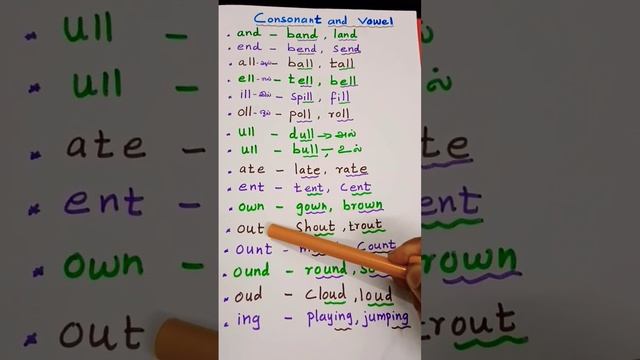 Consonant and Vowel
• and – band, land
• end – bend, send
• all – ball, tall
• ell-எல் – tell, bell
• ill-இல் – spill, fill
• oll – poll, roll
• ull – dull → அல்
• ull – bull – உல்
• ate – late, rate
• ent – tent, cent
• own – gown, brown
• out – shout, trout
• ount – count
• ound – round,
• oud – cloud, loud
• ing – playing, jumping